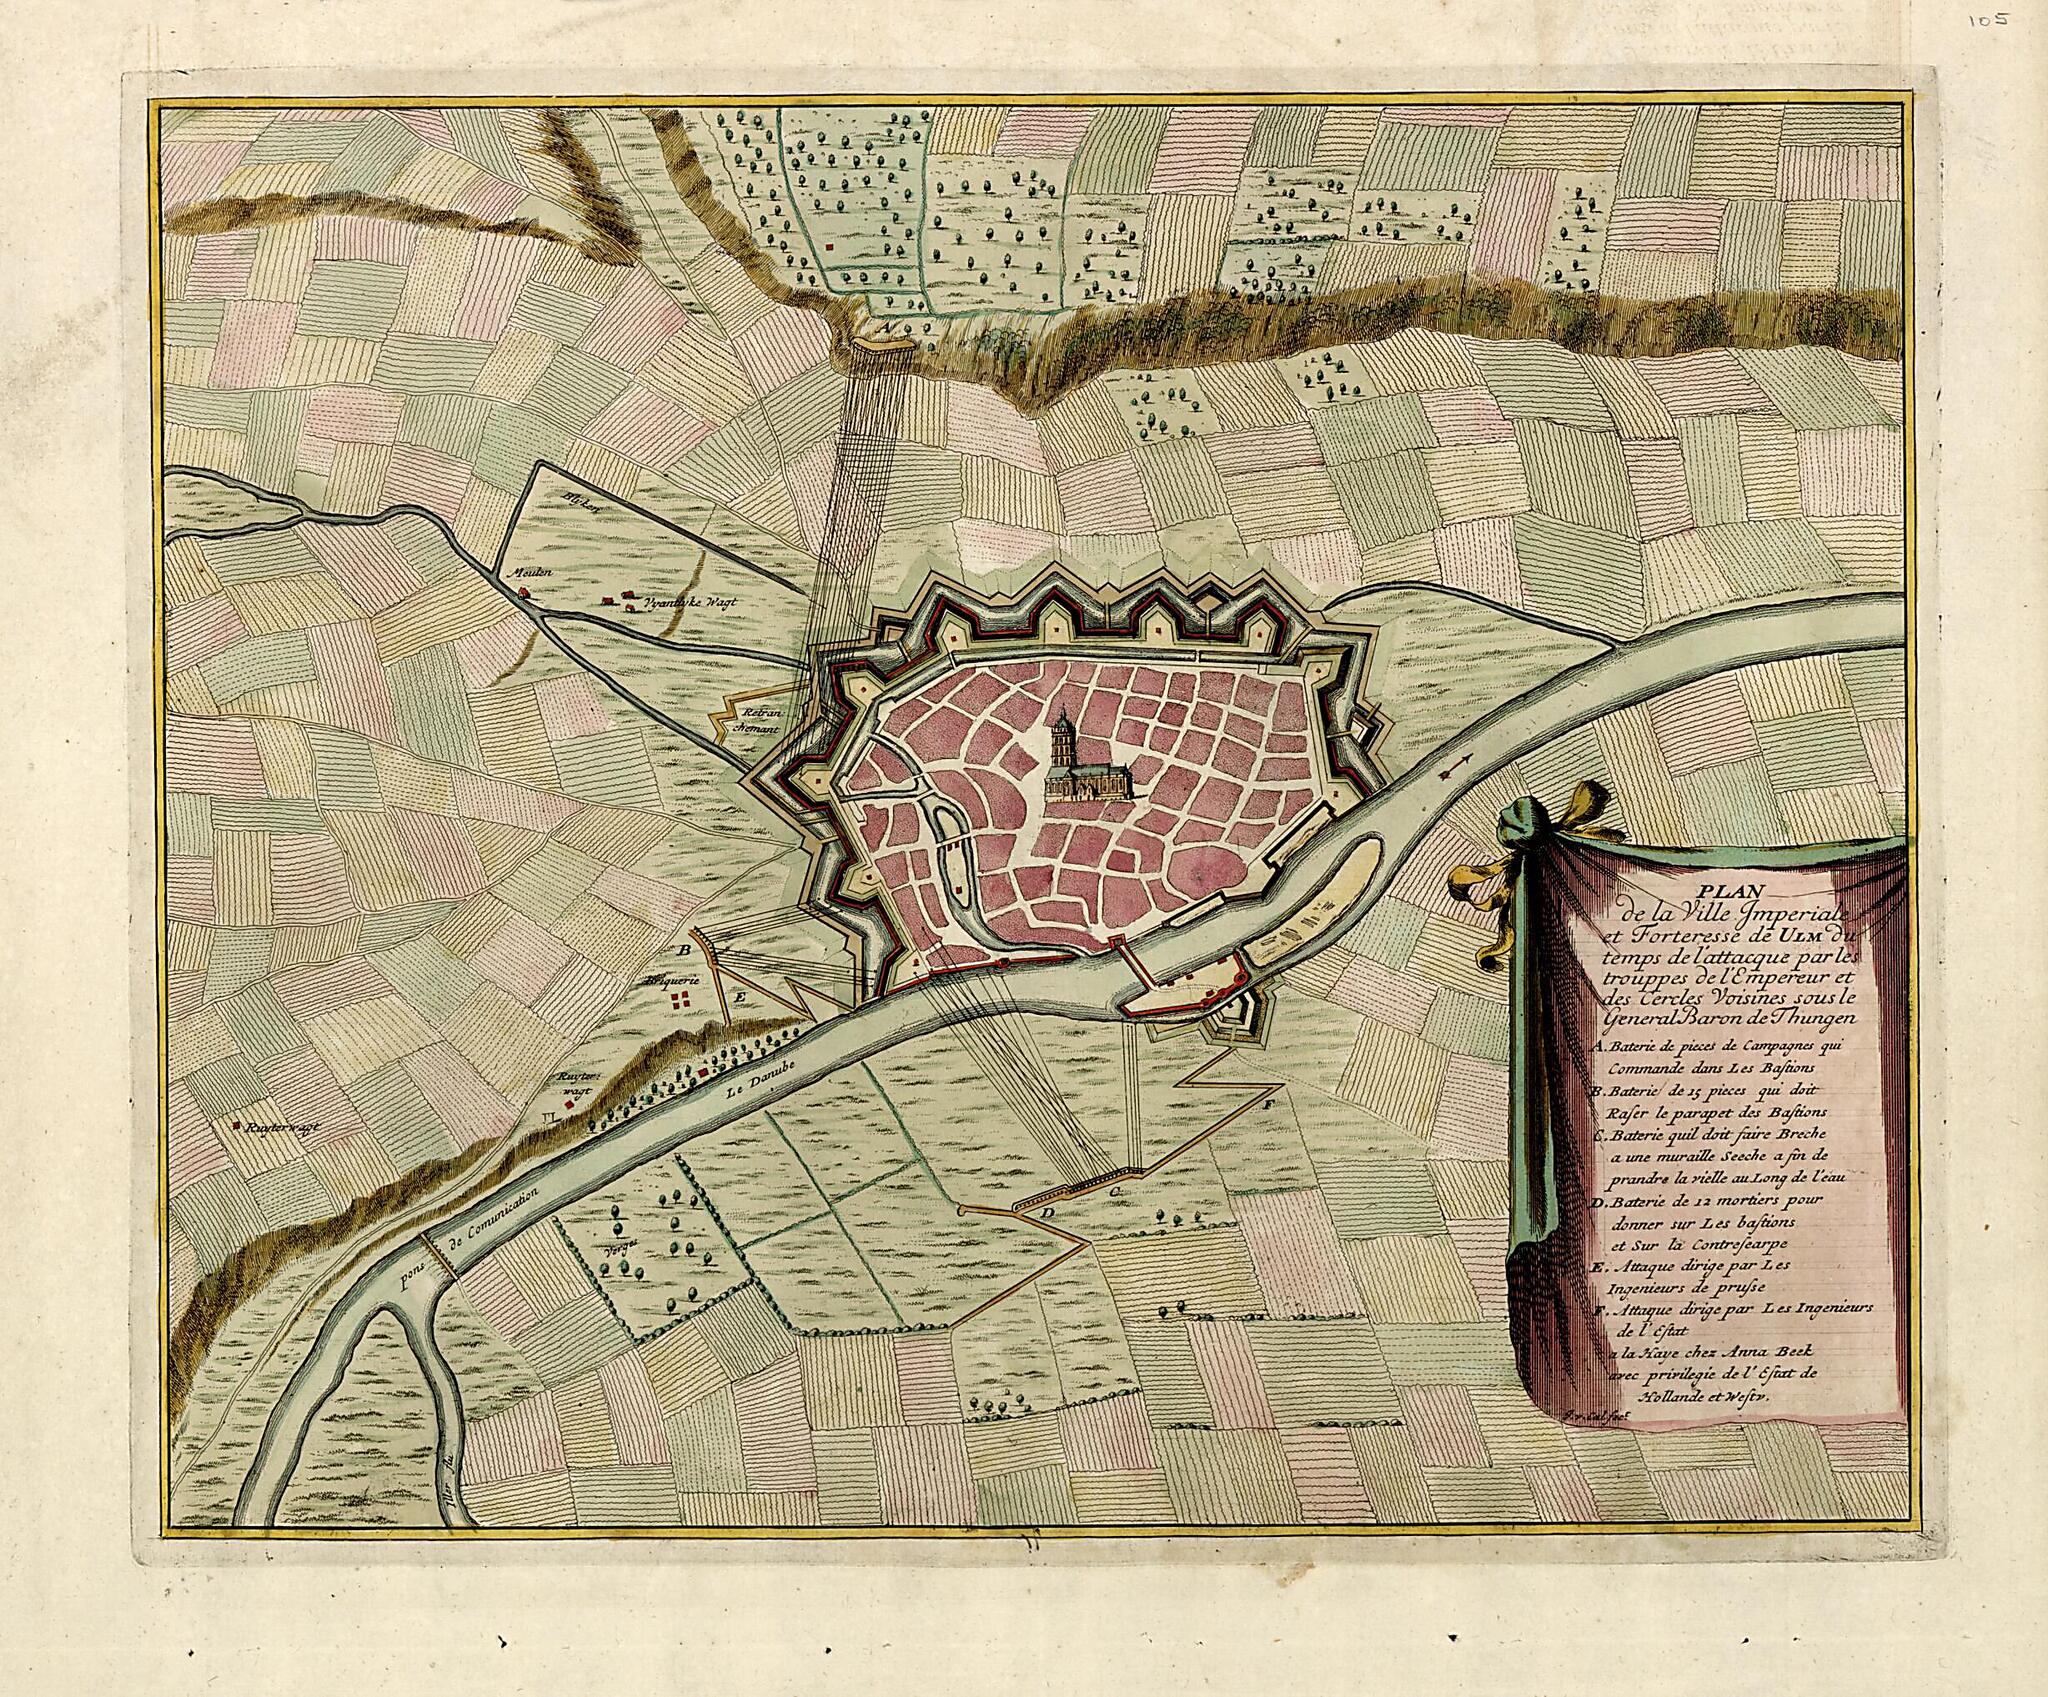 105
A
Blyken
Meulen
Vyantlyke Wagt
Retran
chemant
B
Briquerie
E
Ruyter
wagt
Ruyterwagt
Le Danube
F
C
D
pons de Comunication
Verger
Iller flu
PLAN
de la Ville Imperiale
et Forteresse de ULM du
temps de l'attacque par les
trouppes de l'Empereur et
des Cercles Voisines sous le
General Baron de Thungen
A. Baterie de pieces de Campagnes qui
Commande dans Les Baſtions
B. Baterie de 15 pieces qui doit
Raſer le parapet des Baſtions
C. Baterie quil doit faire Breche
a une muraille Seeche a fin de
prandre la vielle au Long de l'eau
D. Baterie de 12 mortiers pour
donner sur Les baſtions
et Sur la Contreſcarpe
E. Attaque dirige par Les
Ingenieurs de pruſse
F. Attaque dirige par Les Ingenieurs
de l'Eſtat
a la Haye chez Anna Beek
avec privilegie de l'Eſtat de
Hollande et Weſtv.